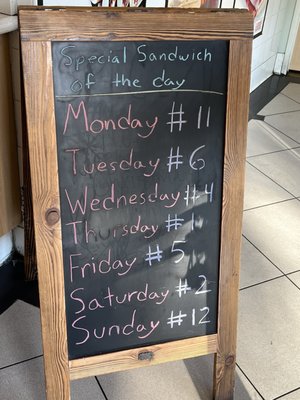 Special Sandwich
of the day
Monday #11
Tuesday #6
Wednesday #4
Thursday #1
Friday #5
Saturday #2
Sunday #12